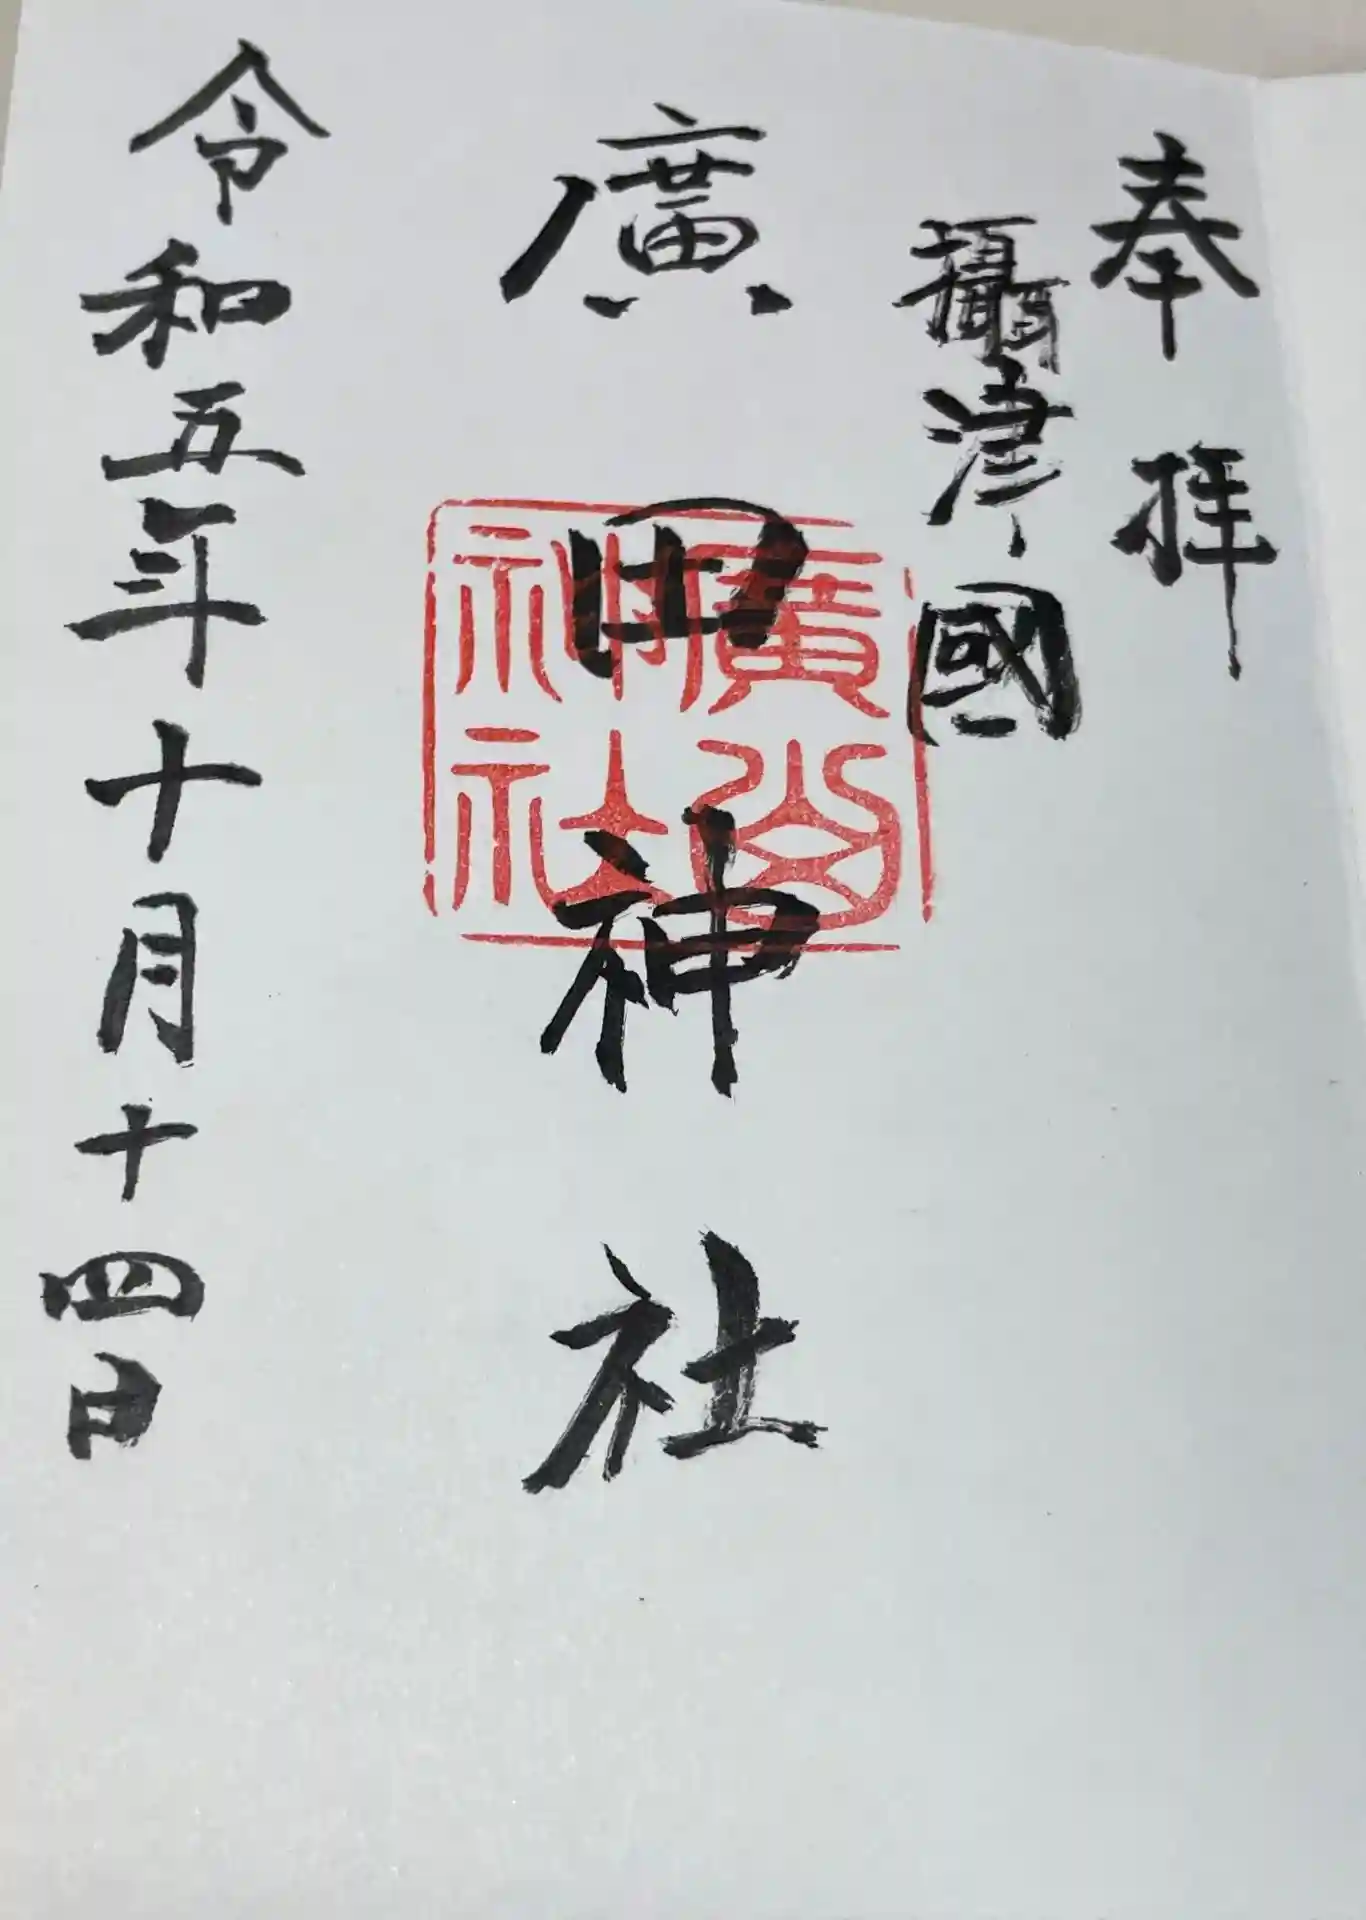 奉拝
攝津國
廣田神社
廣
神社
令和五年十月十四日